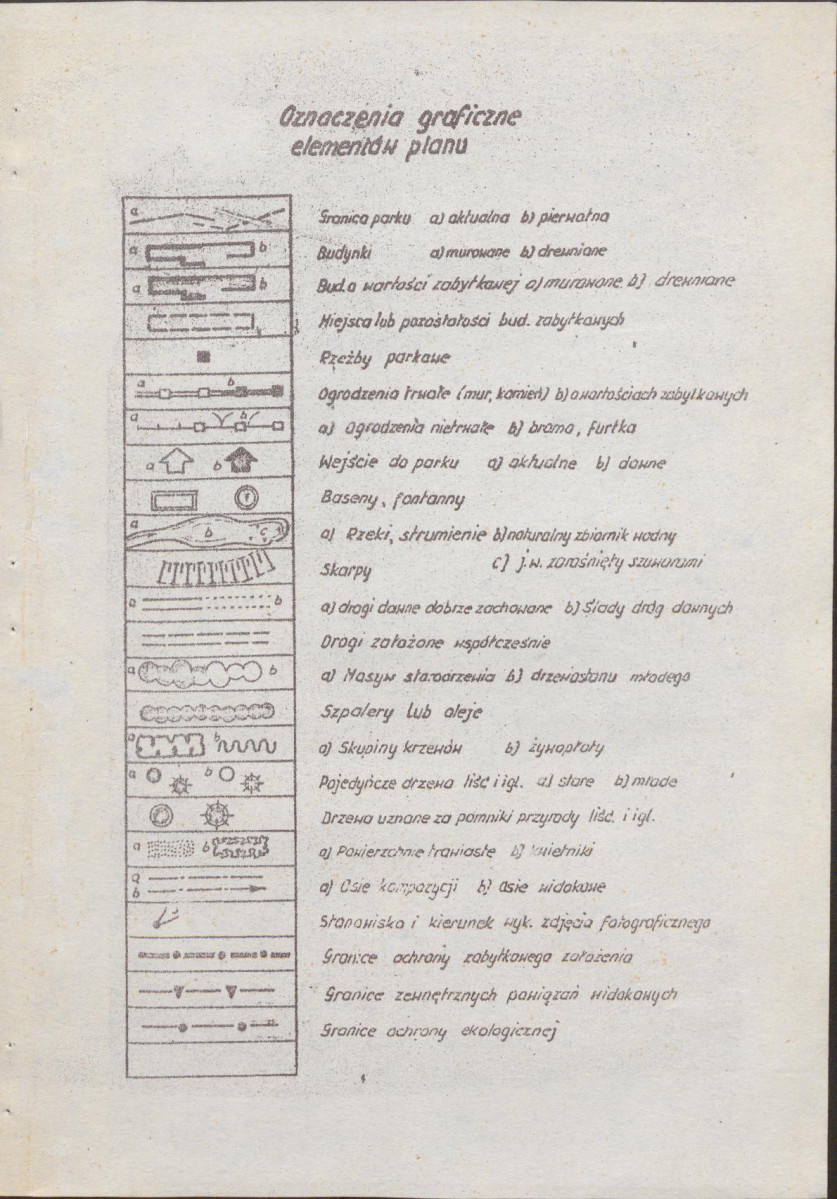 Oznaczenia graficzne
elementów planu
a
Granica parku a) aktualna b) pierwotna
a b
Budynki a) murowane b) drewniane
a b
Bud. o wartości zabytkowej a) murowane b) drewniane
Miejsca lub pozostałości bud. zabytkowych
Rzeźby parkowe
a b
Ogrodzenia trwałe (mur, kamień) b) o wartościach zabytkowych
a b
a) Ogrodzenia nietrwałe b) brama, furtka
a b
Wejście do parku a) aktualne b) dawne
Baseny, fontanny
a b c
a) Rzeki, strumienie b) naturalny zbiornik wodny
c) j.w. zarośnięty szuwarami
Skarpy
a b
a) drogi dawne dobrze zachowane b) Ślady dróg dawnych
Drogi założone współcześnie
a b
a) Masyw starodrzewia b) drzewostanu młodego
Szpalery lub aleje
a b
a) Skupiny krzewów b) żywopłoty
a b
Pojedyńcze drzewa liść i igl. a) stare b) młode
Drzewa uznane za pomniki przyrody liść. i igl.
a b
a) Powierzchnie trawiaste b) kwietniki
a
b
a) Osie kompozycji b) Osie widokowe
Stanowiska i kierunek wyk. zdjęcia fotograficznego
Granice ochrony zabytkowego założenia
Granice zewnętrznych powiązań widokowych
Granice ochrony ekologicznej